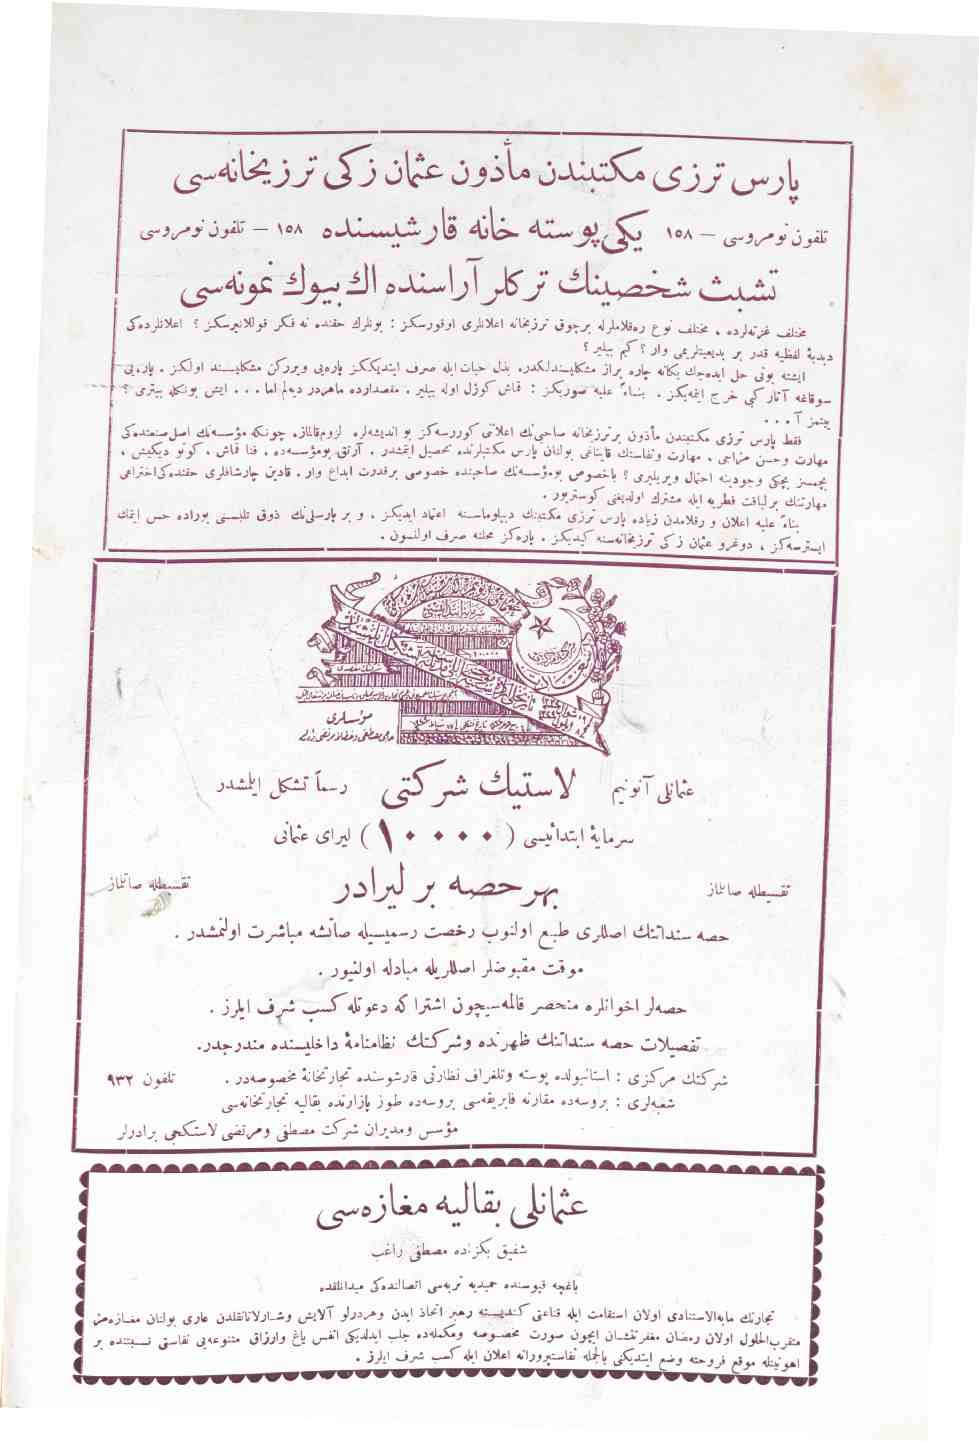 پارس ترزی مكتبندن مأذون عثمان زكی ترزیخانه‌سی
تلفون نومروسی — ١٥٨ یكی پوسته خانه قارشیسنده ١٥٨ — تلفون نومروسی
تشبث شخصینك تركلر آراسنده اك بیوك نمونه‌سی
مختلف غزته‌لرده ، مختلف نوع ره‌قلاملرله برچوق ترزیخانه اعلانلری اوقورسكز : بونلرك حقنده نه فكر قوللانیرسكز ؟ اعلانلرده‌كی
دبدبهٔ لفظیه قدر بر بدیعیتلریمی وار ؟ كیم بیلیر ؟
ایشته بونی حل ایده‌جك یكانه چاره براز مشكلپسندلكدر. بذل حیات ایله صرف ایتدیككز پاره‌یی ویرركن مشكلپسند اولكز . پاره‌یی
سوقاغه آتار كبی خرج ایتمه‌یكز . بناءً علیه صوریكز : قماش كوزل اوله بیلیر . مقصدارده ماهردر دیه‌لم اما ... ایش بونكله بیترمی ؟
بیتمز آ . . .
فقط پارس ترزی مكتبندن مأذون برترزیخانه صاحبی‌نك اعلانی كوررسه‌كز بو اندیشه‌لره لزوم قالماز. چونكه مؤسسه‌نك اصل صنعتنده‌كی
مهارت وحسن مزاجی ، مهارت ونفاستك قایناغی بولنان پارس مكتبلرنده تحصیل ایتمشدر. آرتق بومؤسسه‌ده ، فنا قماش ، كوتو دیكیش ،
بچمسز بچكی وجودینه احتمال ویریلیرمی ؟ باخصوص بومؤسسه‌نك صاحبنده خصوصی برقدرت ابداع وار. قادین چارشافلری حقنده‌كی اختراعی
مهارتنك برلیاقت فطریه ایله مشترك اولدیغنی كوستریور .
بناءً علیه اعلان و رقلامدن زیاده پارس ترزی مكتبنك دیپلوماسنه اعتماد ایدیكز . و بر پارسلی‌نك ذوق تلبسنی بوراده حس ایتمك
ایسترسه‌كز ، دوغرو عثمان زكی ترزیخانه‌سنه كیدیكز . پاره‌كز محلنه صرف اولنسون .
سرمایهٔ ابتدائیسی
مؤسسلری
عثمانلی آنونیم لاستیك شركتی رسماً تشكل ایلمشدر
سرمایهٔ ابتدائیسی ( ١٠٠٠٠ ) لیرای عثمانی
تقسیطله صاتلماز بهر حصه بر لیرادر تقسیطله صاتلماز
حصه سنداتنك اصللری طبع اولنوب رخصت رسمیسیله صاتشه مباشرت اولنمشدر .
موقت مقبوضلر اصللریله مبادله اولنیور .
حصه‌لر اخوانلره منحصر قالمه‌سیچون اشتراكه دعوتله كسب شرف ایلرز .
تفصیلات حصه سنداتنك ظهرنده وشركتك نظامنامهٔ داخلیسنده مندرجدر.
شركتك مركزی : استانبولده پوسته وتلغراف نظارتی قارشوسنده تجارتخانهٔ مخصوصه‌در . تلفون ٩٣٢
شعبه‌لری : بروسه‌ده مقارنه فابریقه‌سی بروسه‌ده طوز پازارنده بقالیه تجارتخانه‌سی
مؤسس ومدیران شركت مصطفی ومرتضی لاستكجی برادرلر
عثمانلی بقالیه مغازه‌سی
شفیق بكزاده مصطفی راغب
باغچه قپوسنده حمیدیه تربه‌سی اتصالنده‌كی میدانلقده
تجارتك مابه‌الاستنادی اولان استقامت ایله قناعتی كندیسنه رهبر اتخاذ ایدن وهردرلو آلایش وشارلاتانلقدن عاری بولنان مغازه‌مز
متقرب‌الحلول اولان رمضان مغفرتنشان ایچون صورت مخصوصه ومكمله‌ده جلب ایدلدیكی انفس یاغ وارزاق متنوعه‌یی نفاستی نسبتنده بر
اهونیتله موقع فروخته وضع ایتدیكنی بالجمله نفاستپرورانه اعلان ایله كسب شرف ایلرز .